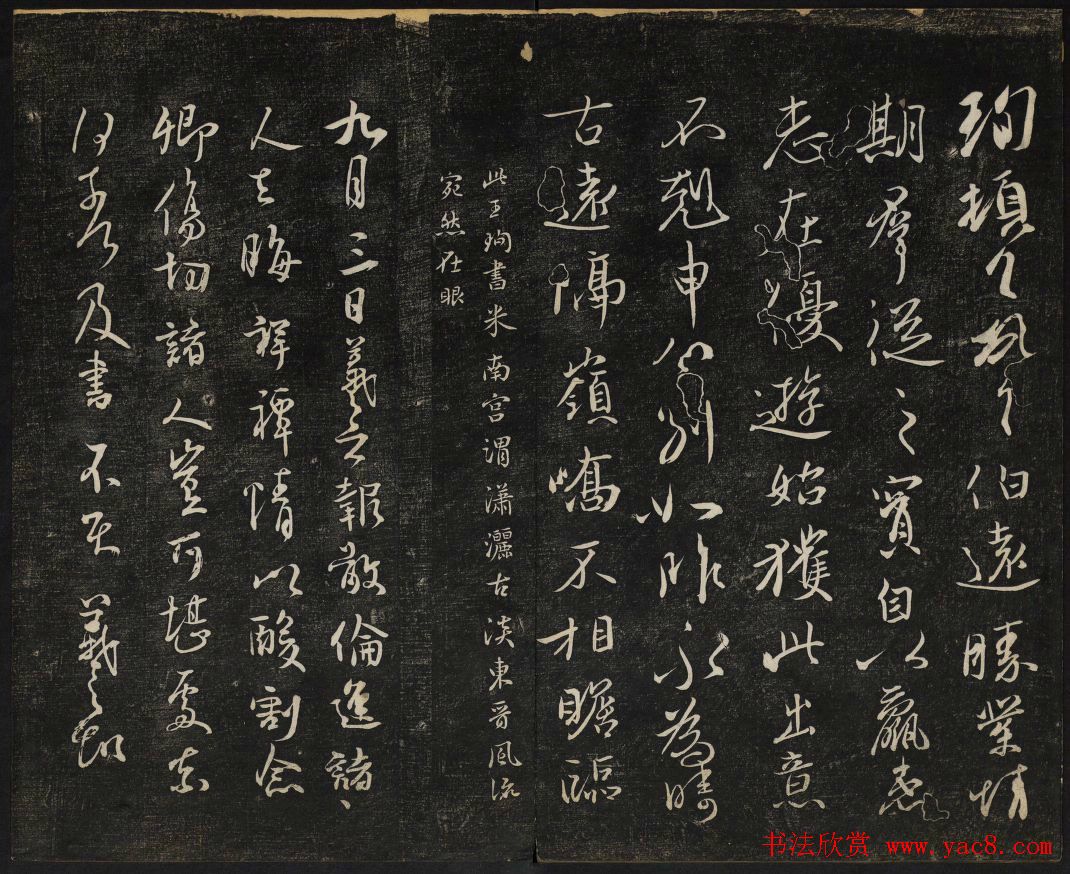 珣頓首頓首伯遠勝業情
期羣從之寶自以羸患
志在優遊始獲此出意
不剋申分別如昨永為疇
古遠隔嶺嶠不相瞻臨
此王珣書米南宮謂瀟灑古淡東晉風流
宛然在眼
九月三日羲之報敬倫遮諸
人去晦祥禫情以酸割念
卿傷切諸人豈可堪處奈
何奈何及書不具羲之報
书法欣赏 www.yac8.com